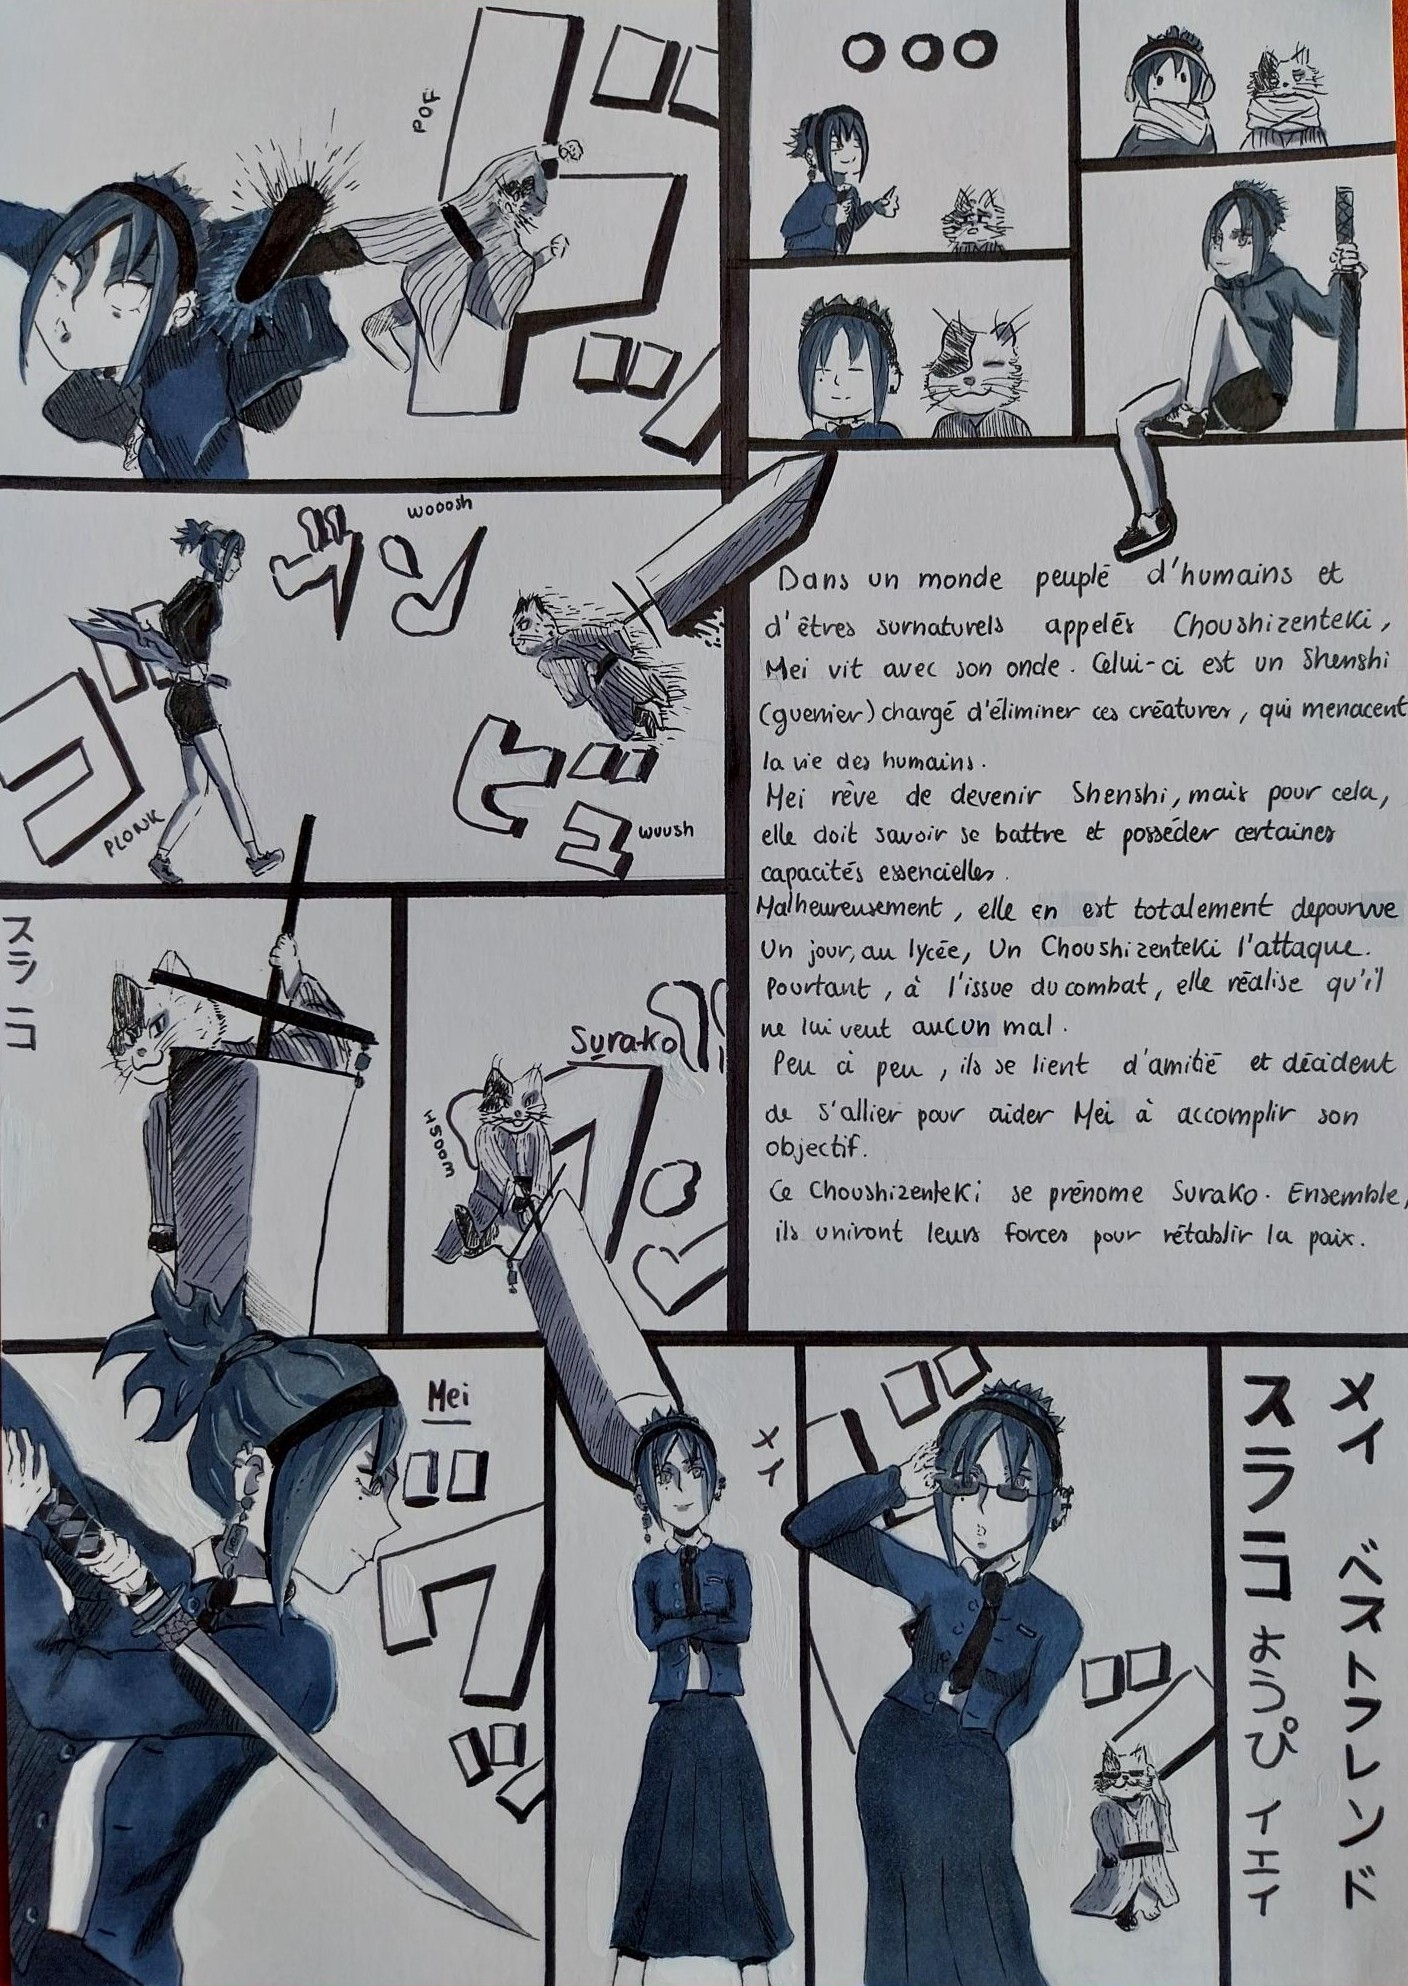 POF
ooo
wooosh
ヅッ
PLONK
ビュ
wuush
スラコ
Surako
HSOOM
Dans un monde peuplé d'humains et
d'êtres surnaturels appelés Choushizenteki,
Mei vit avec son oncle. Celui-ci est un Shenshi
(guerrier) chargé d'éliminer ces créatures, qui menacent
la vie des humains.
Mei rêve de devenir Shenshi, mais pour cela,
elle doit savoir se battre et posséder certaines
capacités essencielles.
Malheureusement, elle en est totalement depourvue
Un jour, au lycée, Un Choushizenteki l'attaque.
Pourtant, à l'issue du combat, elle réalise qu'il
ne lui veut aucun mal.
Peu à peu, ils se lient d'amitié et décident
de s'allier pour aider Mei à accomplir son
objectif.
Ce Choushizenteki se prénome Surako. Ensemble,
ils uniront leurs forces pour rétablir la paix.
Mei
メイ
メイ ベストフレンド
スラコ ようぴ イエイ